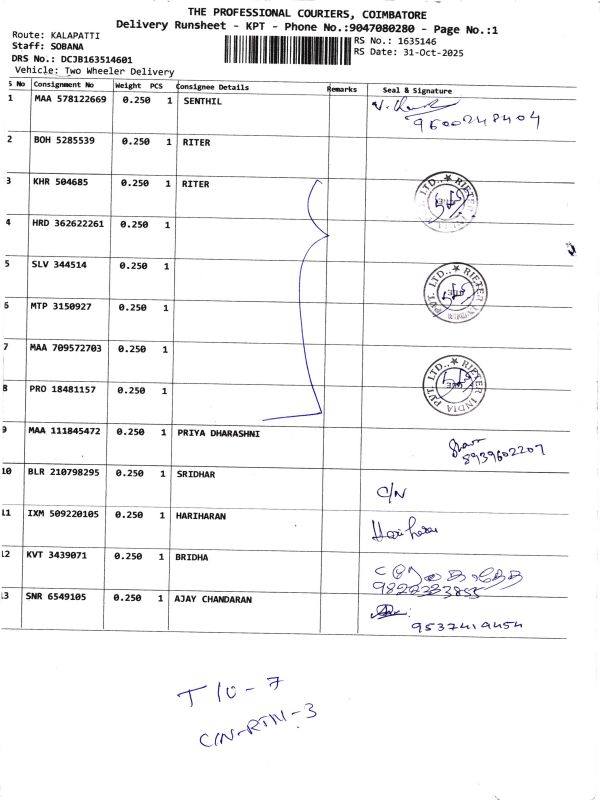 THE PROFESSIONAL COURIERS, COIMBATORE
Delivery Runsheet - KPT - Phone No.:9047080280 - Page No.:1
Route: KALAPATTI
Staff: SOBANA
DRS No.: DCJB163514601
Vehicle: Two Wheeler Delivery
RS No.: 1635146
RS Date: 31-Oct-2025
S No Consignment No Weight PCS Consignee Details Remarks Seal & Signature
1 MAA 578122669 0.250 1 SENTHIL
9600248404
2 BOH 5285539 0.250 1 RITER
3 KHR 504685 0.250 1 RITER
RIETER INDIA PVT. LTD.
4 HRD 362622261 0.250 1
5 SLV 344514 0.250 1
RIETER INDIA PVT. LTD.
6 MTP 3150927 0.250 1
7 MAA 709572703 0.250 1
RIETER INDIA PVT. LTD.
8 PRO 18481157 0.250 1
9 MAA 111845472 0.250 1 PRIYA DHARASHNI
8939602207
10 BLR 210798295 0.250 1 SRIDHAR
C/N
11 IXM 509220105 0.250 1 HARIHARAN
Hariharan
12 KVT 3439071 0.250 1 BRIDHA
13 SNR 6549105 0.250 1 AJAY CHANDARAN
9537419454
T10-7
C/N-RTN-3